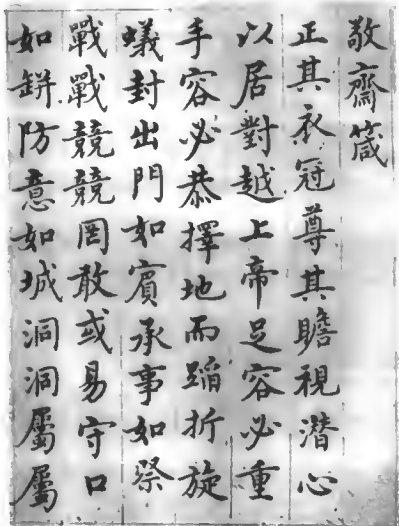 敬齋箴
正其衣冠尊其瞻視潜心
以居對越上帝足容必重
手容必恭擇地而蹈折旋
蟻封出門如賓承事如祭
戰戰競競罔敢或易守口
如缾防意如城洞洞屬屬